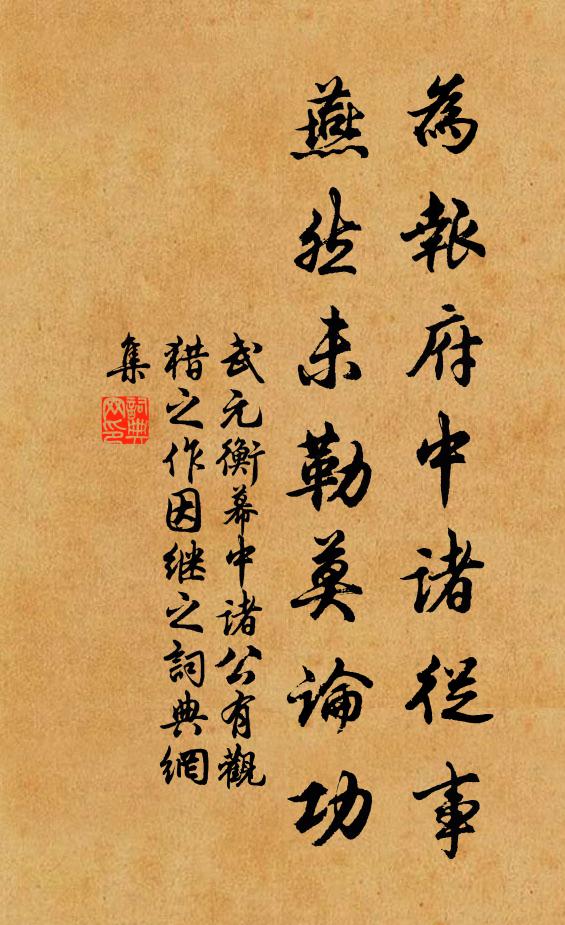 為報府中諸從事
燕然未勒莫論功
武元衡幕中諸公有觀
猎之作因继之詞典網
集
詞典網印